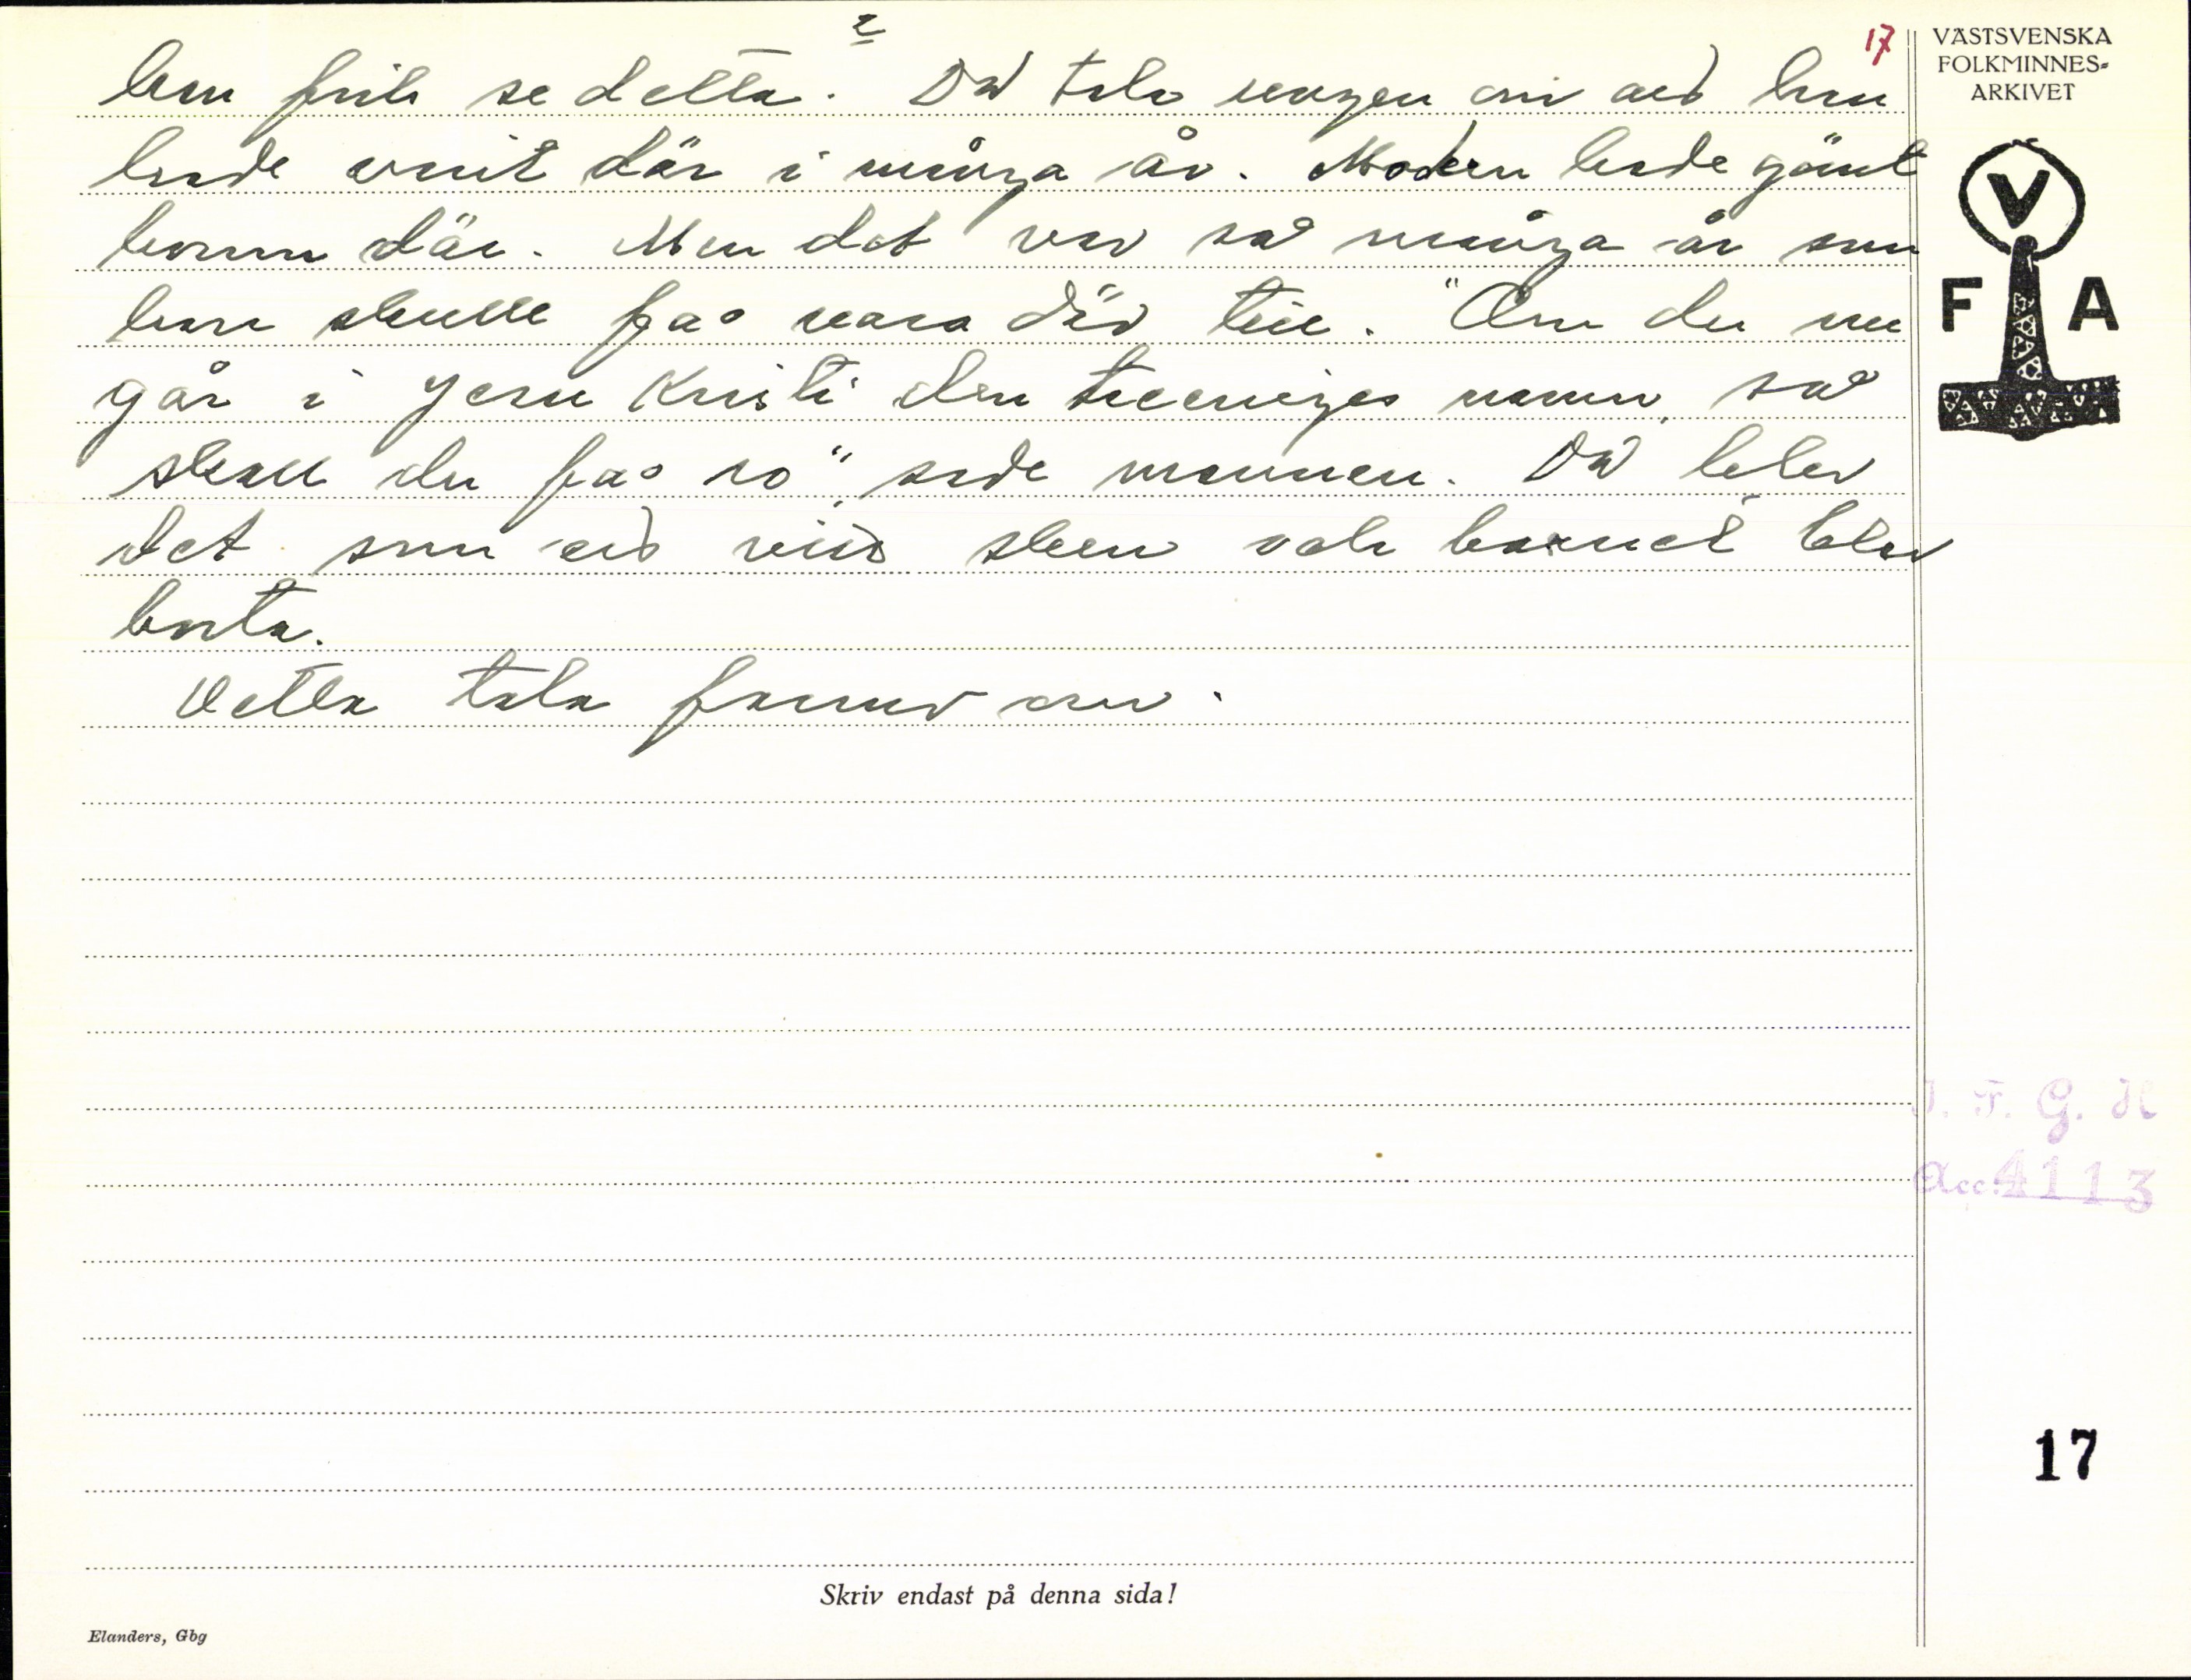 2
17
han fick se detta. Då tala ungen om att han
hade varit där i många år. Modern hade gömt
honom där. Men det var så många år som
han skulle få vara där till. "Om du nu
går i Jesu Kristi den treeniges namn, så
skall du få ro", sade mannen. Då blev
det som ett vitt sken och barnet blev
borta.
Detta tala farmor om.
VÄSTSVENSKA
FOLKMINNES-
ARKIVET
V
F A
I. F. G. H
Acc. 4113
17
Skriv endast på denna sida!
Elanders, Gbg